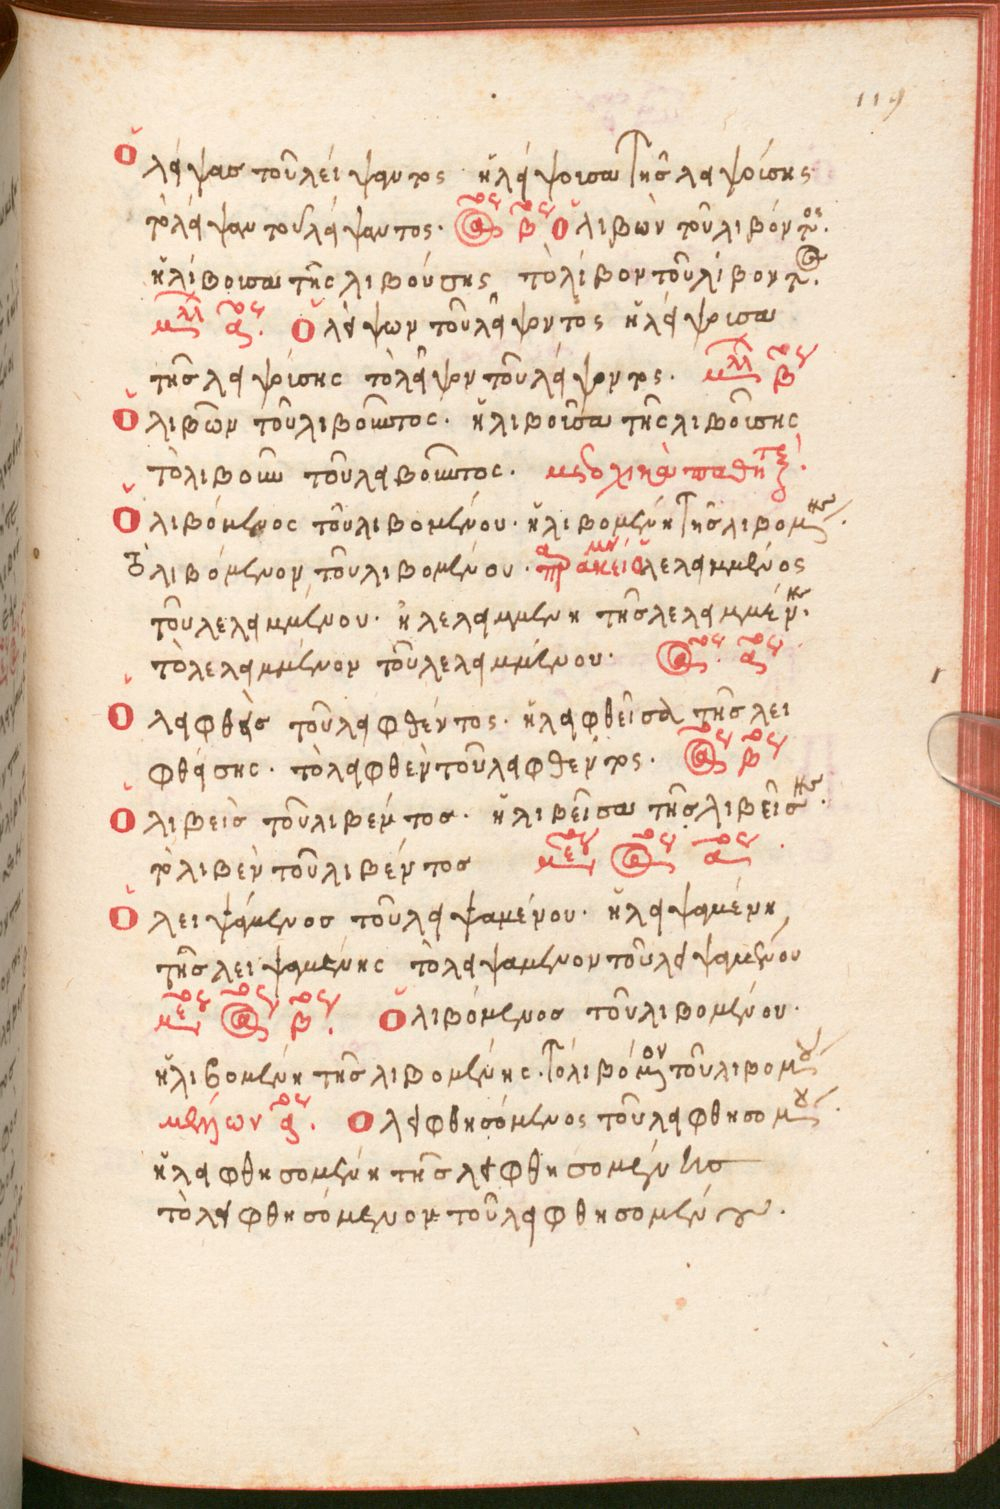 119
Ὁ λάψας τοῦ λείψαντος ἡ λάψοισα τῆς λαψοίσης
τὸ λάψαν τοῦ λάψαντος. β Ὁ λιβὼν τοῦ λιβόντος.
ἡ λίβοισα τῆς λιβούσης τὸ λίβον τοῦ λίβοντ
μελλ α. Ὁ λάψων τοῦ λάψοντος ἡ λάψοισα
τῆς λαψοίσης τὸ λάψον τοῦ λάψοντος. μελλ β
Ὁ λιβῶν τοῦ λιβοῦντος. ἡ λιβοῖσα τῆς λιβοίσης
τὸ λιβοῦν τοῦ λαβοῦντος. μετοχικὰ παθητ
Ὁ λιβόμενος τοῦ λιβομένου. ἡ λιβομένη τῆς λιβομένης.
τὸ λιβόμενον τοῦ λιβομένου. παρακείμεν ὁ λελαμμένος
τοῦ λελαμμένου. ἡ λελαμμένη τῆς λελαμμένης.
τὸ λελαμμένον τοῦ λελαμμένου. α
Ὁ λαφθεὶς τοῦ λαφθέντος. ἡ λαφθεῖσα τῆς λει
φθάσης. τὸ λαφθὲν τοῦ λαφθέντος. β
Ὁ λιβεὶς τοῦ λιβέντος. ἡ λιβεῖσα τῆς λιβείσης.
τὸ λιβὲν τοῦ λιβέντος μέσου α
Ὁ λειψάμενος τοῦ λαψαμένου. ἡ λαψαμένη
τῆς λειψαμένης τὸ λαψάμενον τοῦ λαψαμένου
μέσου β. Ὁ λιβόμενος τοῦ λιβομένου.
ἡ λιβομένη τῆς λιβομένης. τὸ λιβόμενον τοῦ λιβομένου
μελλόντων α. Ὁ λαφθησόμενος τοῦ λαφθησομένου.
ἡ λαφθησομένη τῆς λαφθησομένης
τὸ λαφθησόμενον τοῦ λαφθησομένου.